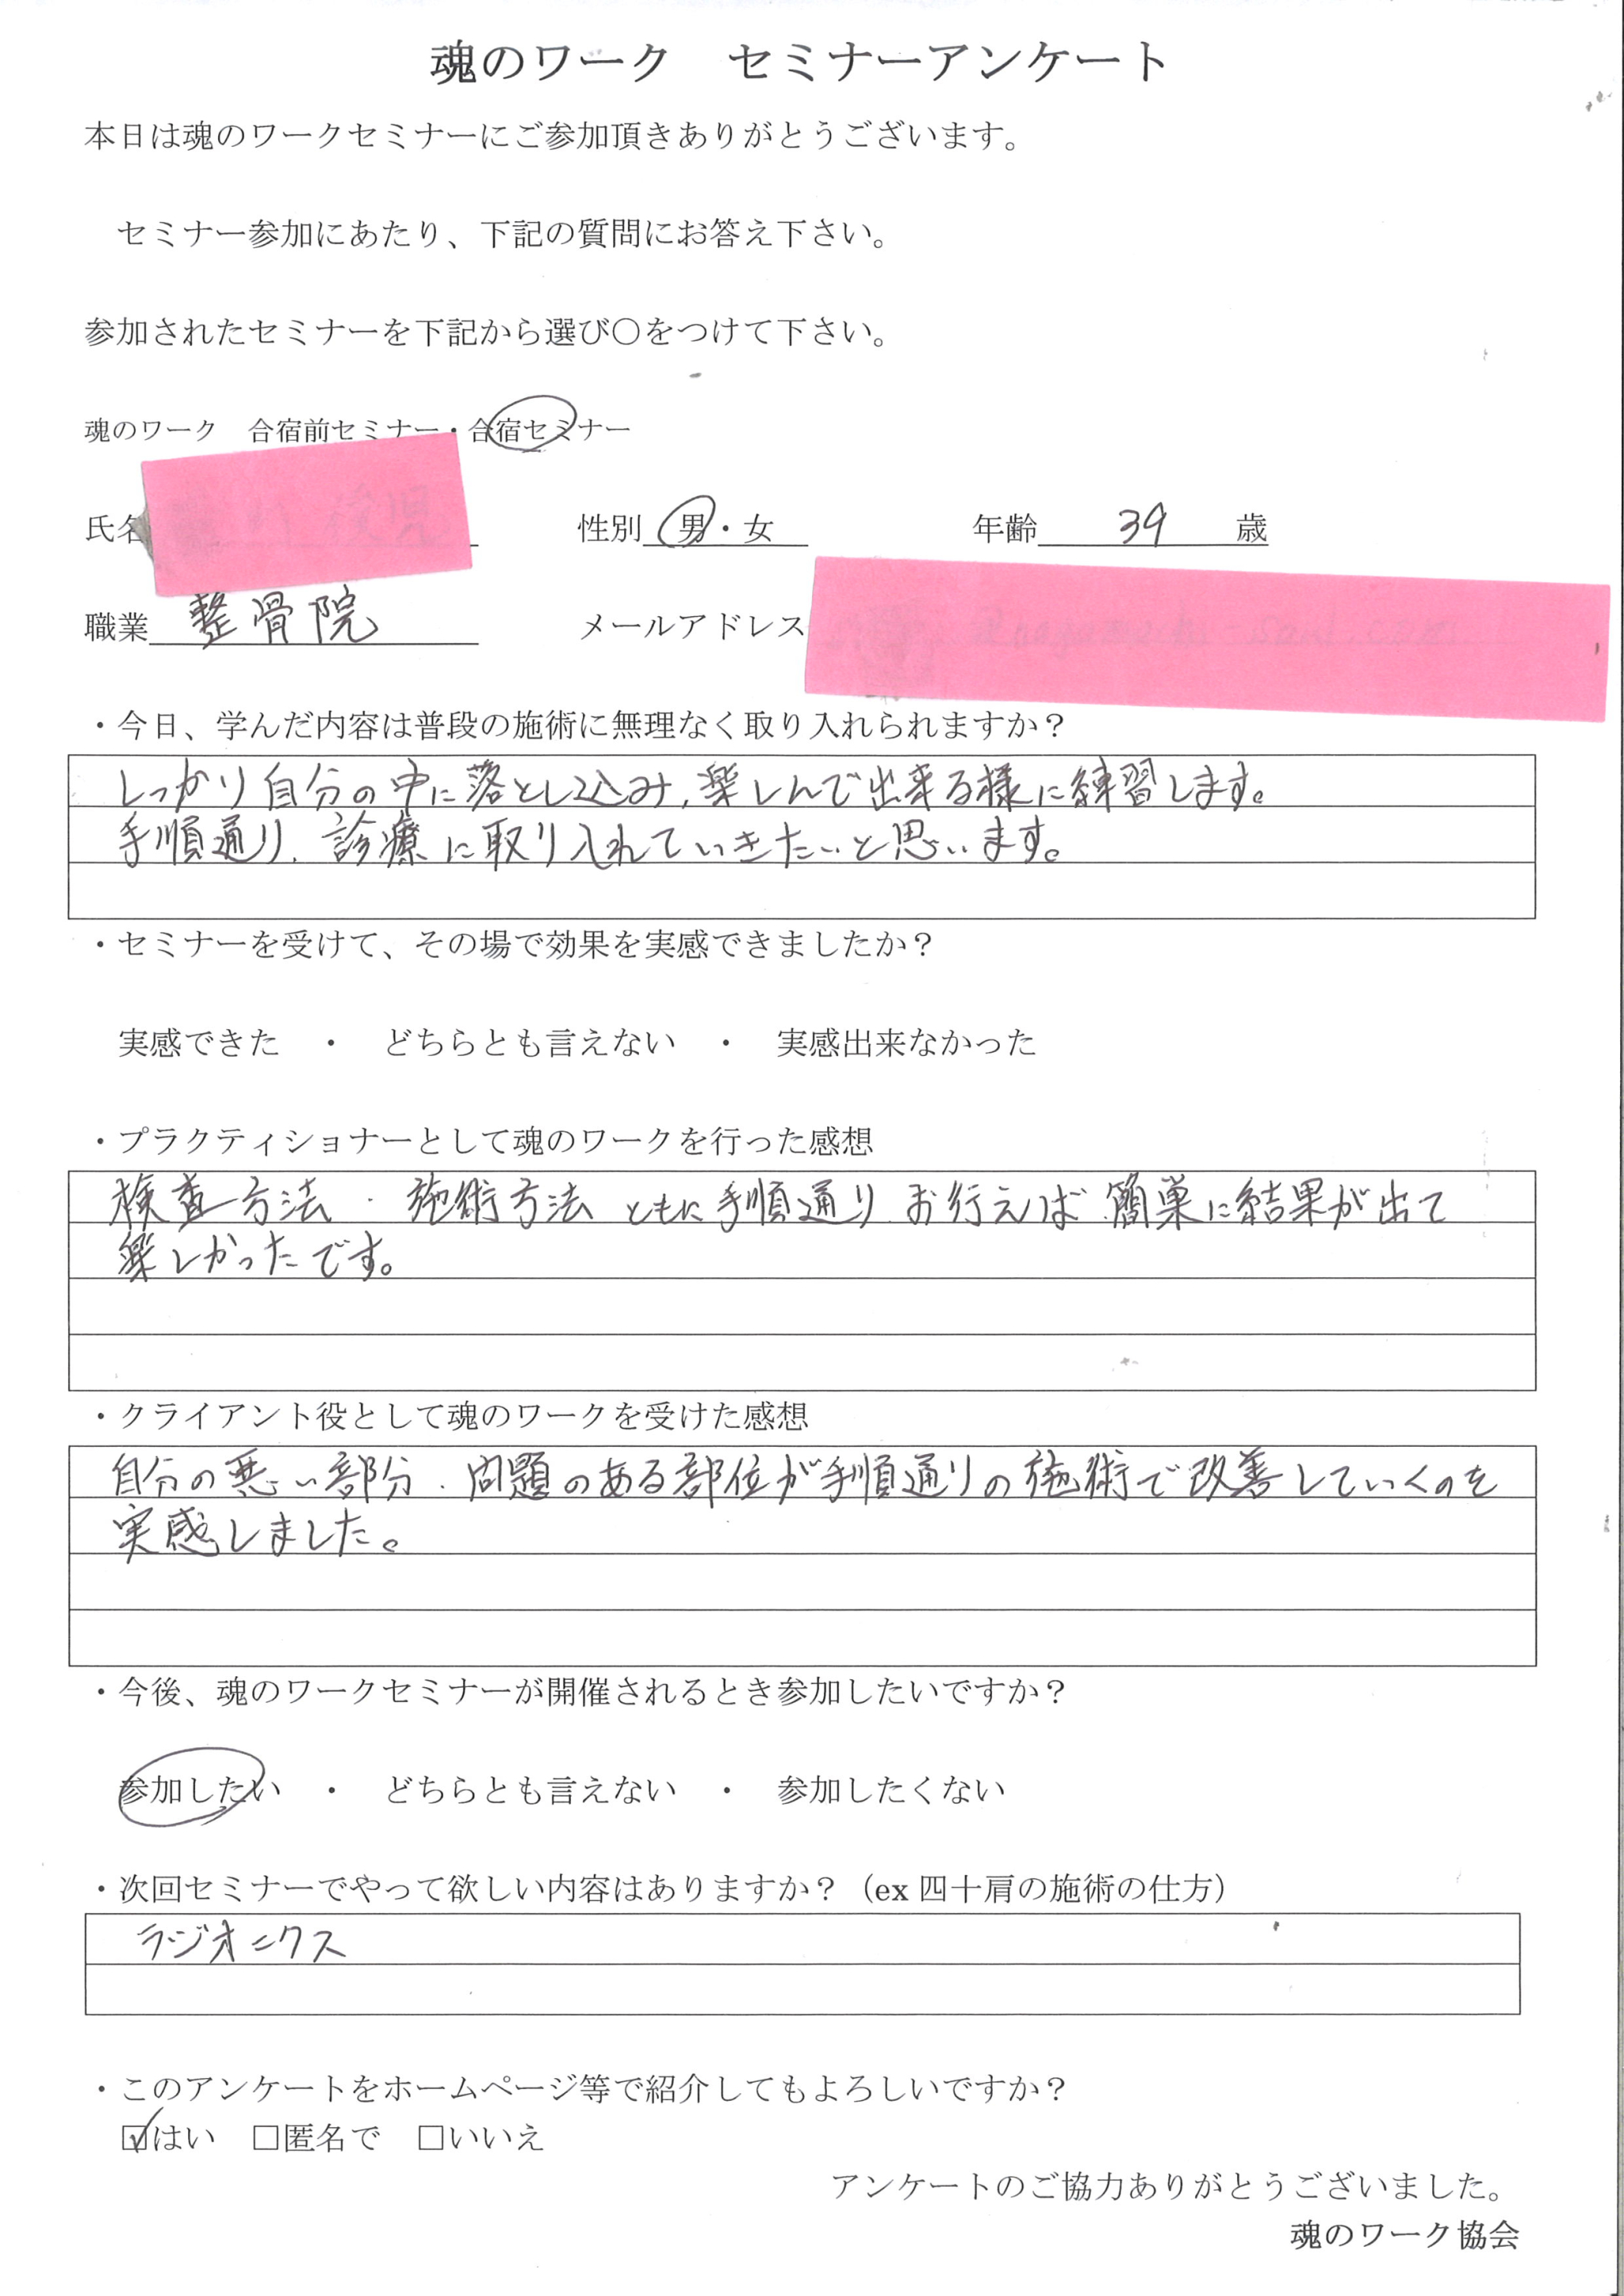 魂のワーク　セミナーアンケート
本日は魂のワークセミナーにご参加頂きありがとうございます。
セミナー参加にあたり、下記の質問にお答え下さい。
参加されたセミナーを下記から選び〇をつけて下さい。
魂のワーク　合宿前セミナー・合宿セミナー
氏名　性別　男・女　年齢　39　歳
職業　整骨院　メールアドレス
・今日、学んだ内容は普段の施術に無理なく取り入れられますか？
しっかり自分の中に落とし込み、楽しんで出来る様に練習します。
手順通り、診療に取り入れていきたいと思います。
・セミナーを受けて、その場で効果を実感できましたか？
実感できた　・　どちらとも言えない　・　実感出来なかった
・プラクティショナーとして魂のワークを行った感想
検査方法・施術方法ともに手順通りお行えば、簡単に結果が出て
楽しかったです。
・クライアント役として魂のワークを受けた感想
自分の悪い部分、問題のある部位が手順通りの施術で改善していくのを
実感しました。
・今後、魂のワークセミナーが開催されるとき参加したいですか？
参加したい　・　どちらとも言えない　・　参加したくない
・次回セミナーでやって欲しい内容はありますか？（ex 四十肩の施術の仕方）
ラジオニクス
・このアンケートをホームページ等で紹介してもよろしいですか？
☑はい　□匿名で　□いいえ
アンケートのご協力ありがとうございました。
魂のワーク協会